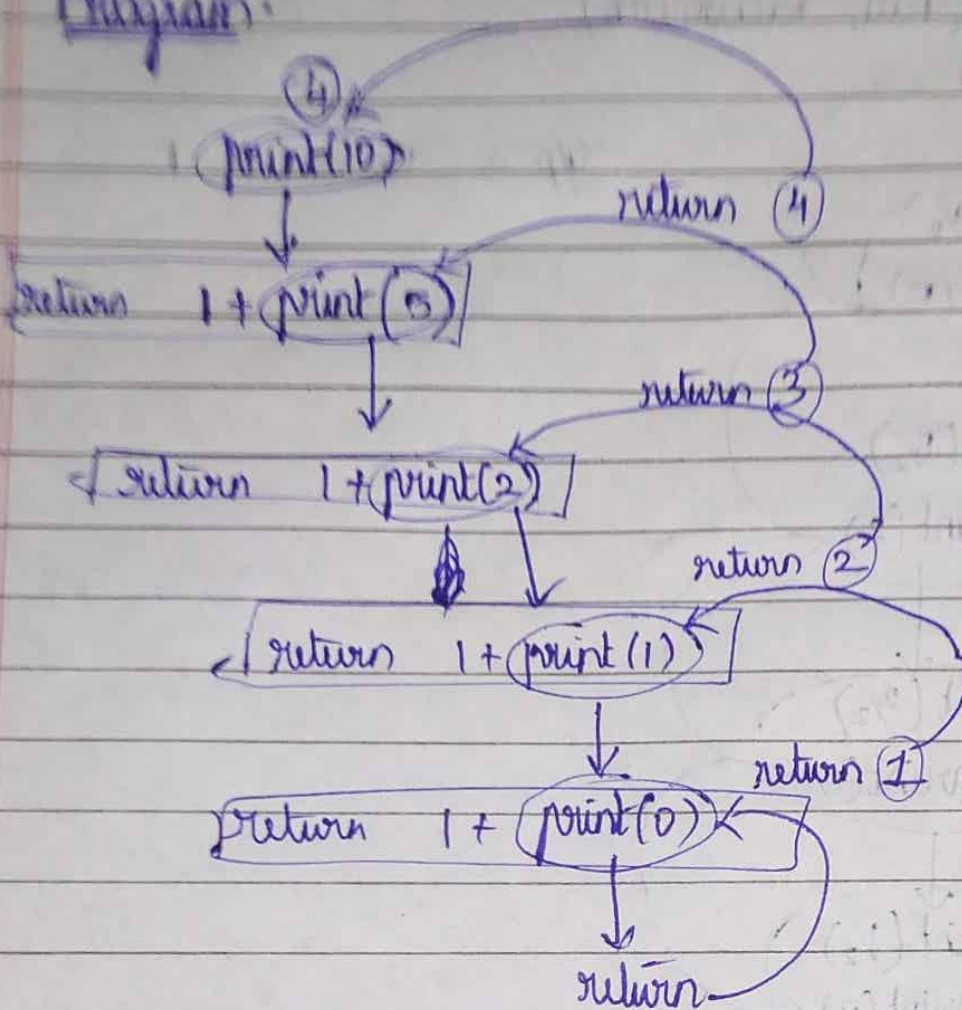 Diagram:
4
print(10)
return 4
return 1 + print(5)
return 3
return 1 + print(2)
return 2
return 1 + print(1)
return 1
return 1 + print(0)
return